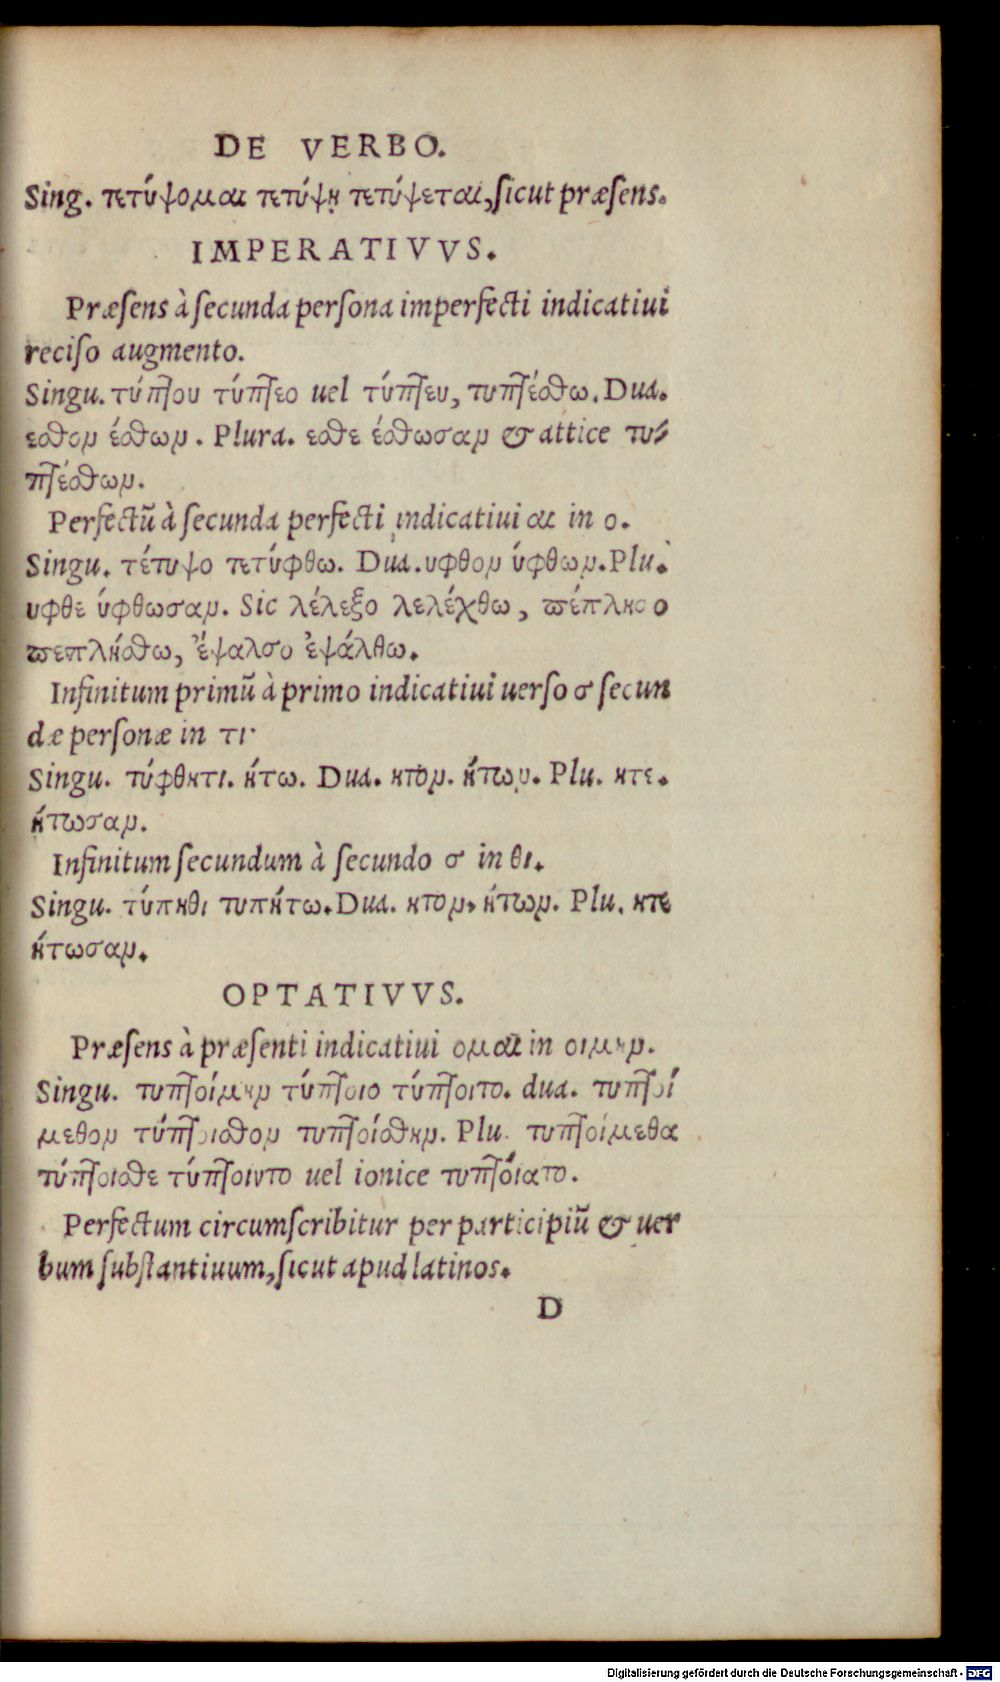 DE VERBO.
Sing. τετύψομαι τετύψῃ τετύψεται, sicut præsens.
IMPERATIVVS.
Præsens à secunda persona imperfecti indicatiui
reciso augmento.
Singu. τύπτου τύπτεο uel τύπτευ, τυπτέσθω. Dua.
εσθον έσθων. Plura. εσθε έσθωσαν & attice τυ-
πτέσθων.
Perfectū à secunda perfecti indicatiui αι in ο.
Singu. τέτυψο τετύφθω. Dua. υφθον ύφθων. Plu.
υφθε ύφθωσαν. Sic λέλεξο λελέχθω, πέπλησο
πεπλήσθω, ἔψαλσο ἐψάλθω.
Infinitum primū à primo indicatiui uerso σ secun
dæ personæ in τι·
Singu. τύφθητι. ήτω. Dua. ητον. ήτων. Plu. ητε.
ήτωσαν.
Infinitum secundum à secundo σ in θι.
Singu. τύπηθι τυπήτω. Dua. ητον. ήτων. Plu. ητε
ήτωσαν.
OPTATIVVS.
Præsens à præsenti indicatiui ομαι in οιμην.
Singu. τυπτοίμην τύπτοιο τύπτοιτο. dua. τυπτοί
μεθον τύπτοισθον τυπτοίσθην. Plu. τυπτοίμεθα
τύπτοισθε τύπτοιντο uel ionice τυπτοίατο.
Perfectum circumscribitur per participiū & uer
bum substantiuum, sicut apud latinos.
D
Digitalisierung gefördert durch die Deutsche Forschungsgemeinschaft - DFG